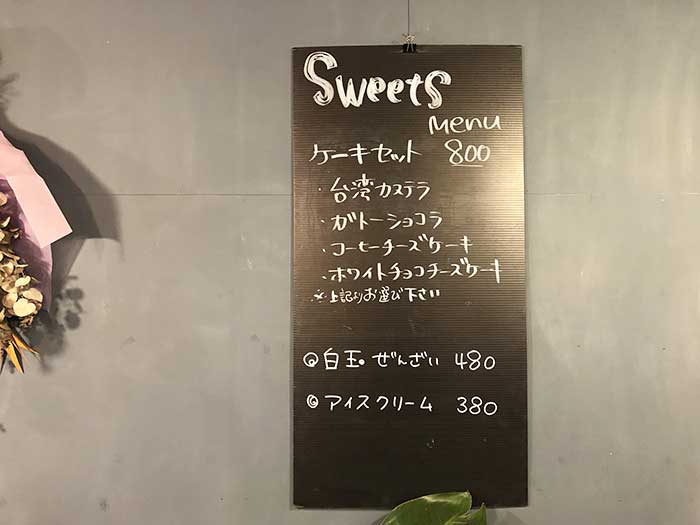 Sweets
menu
ケーキセット 800
・台湾カステラ
・ガトーショコラ
・コーヒーチーズケーキ
・ホワイトチョコチーズケーキ
※上記よりお選び下さい
◎白玉ぜんざい 480
◎アイスクリーム 380